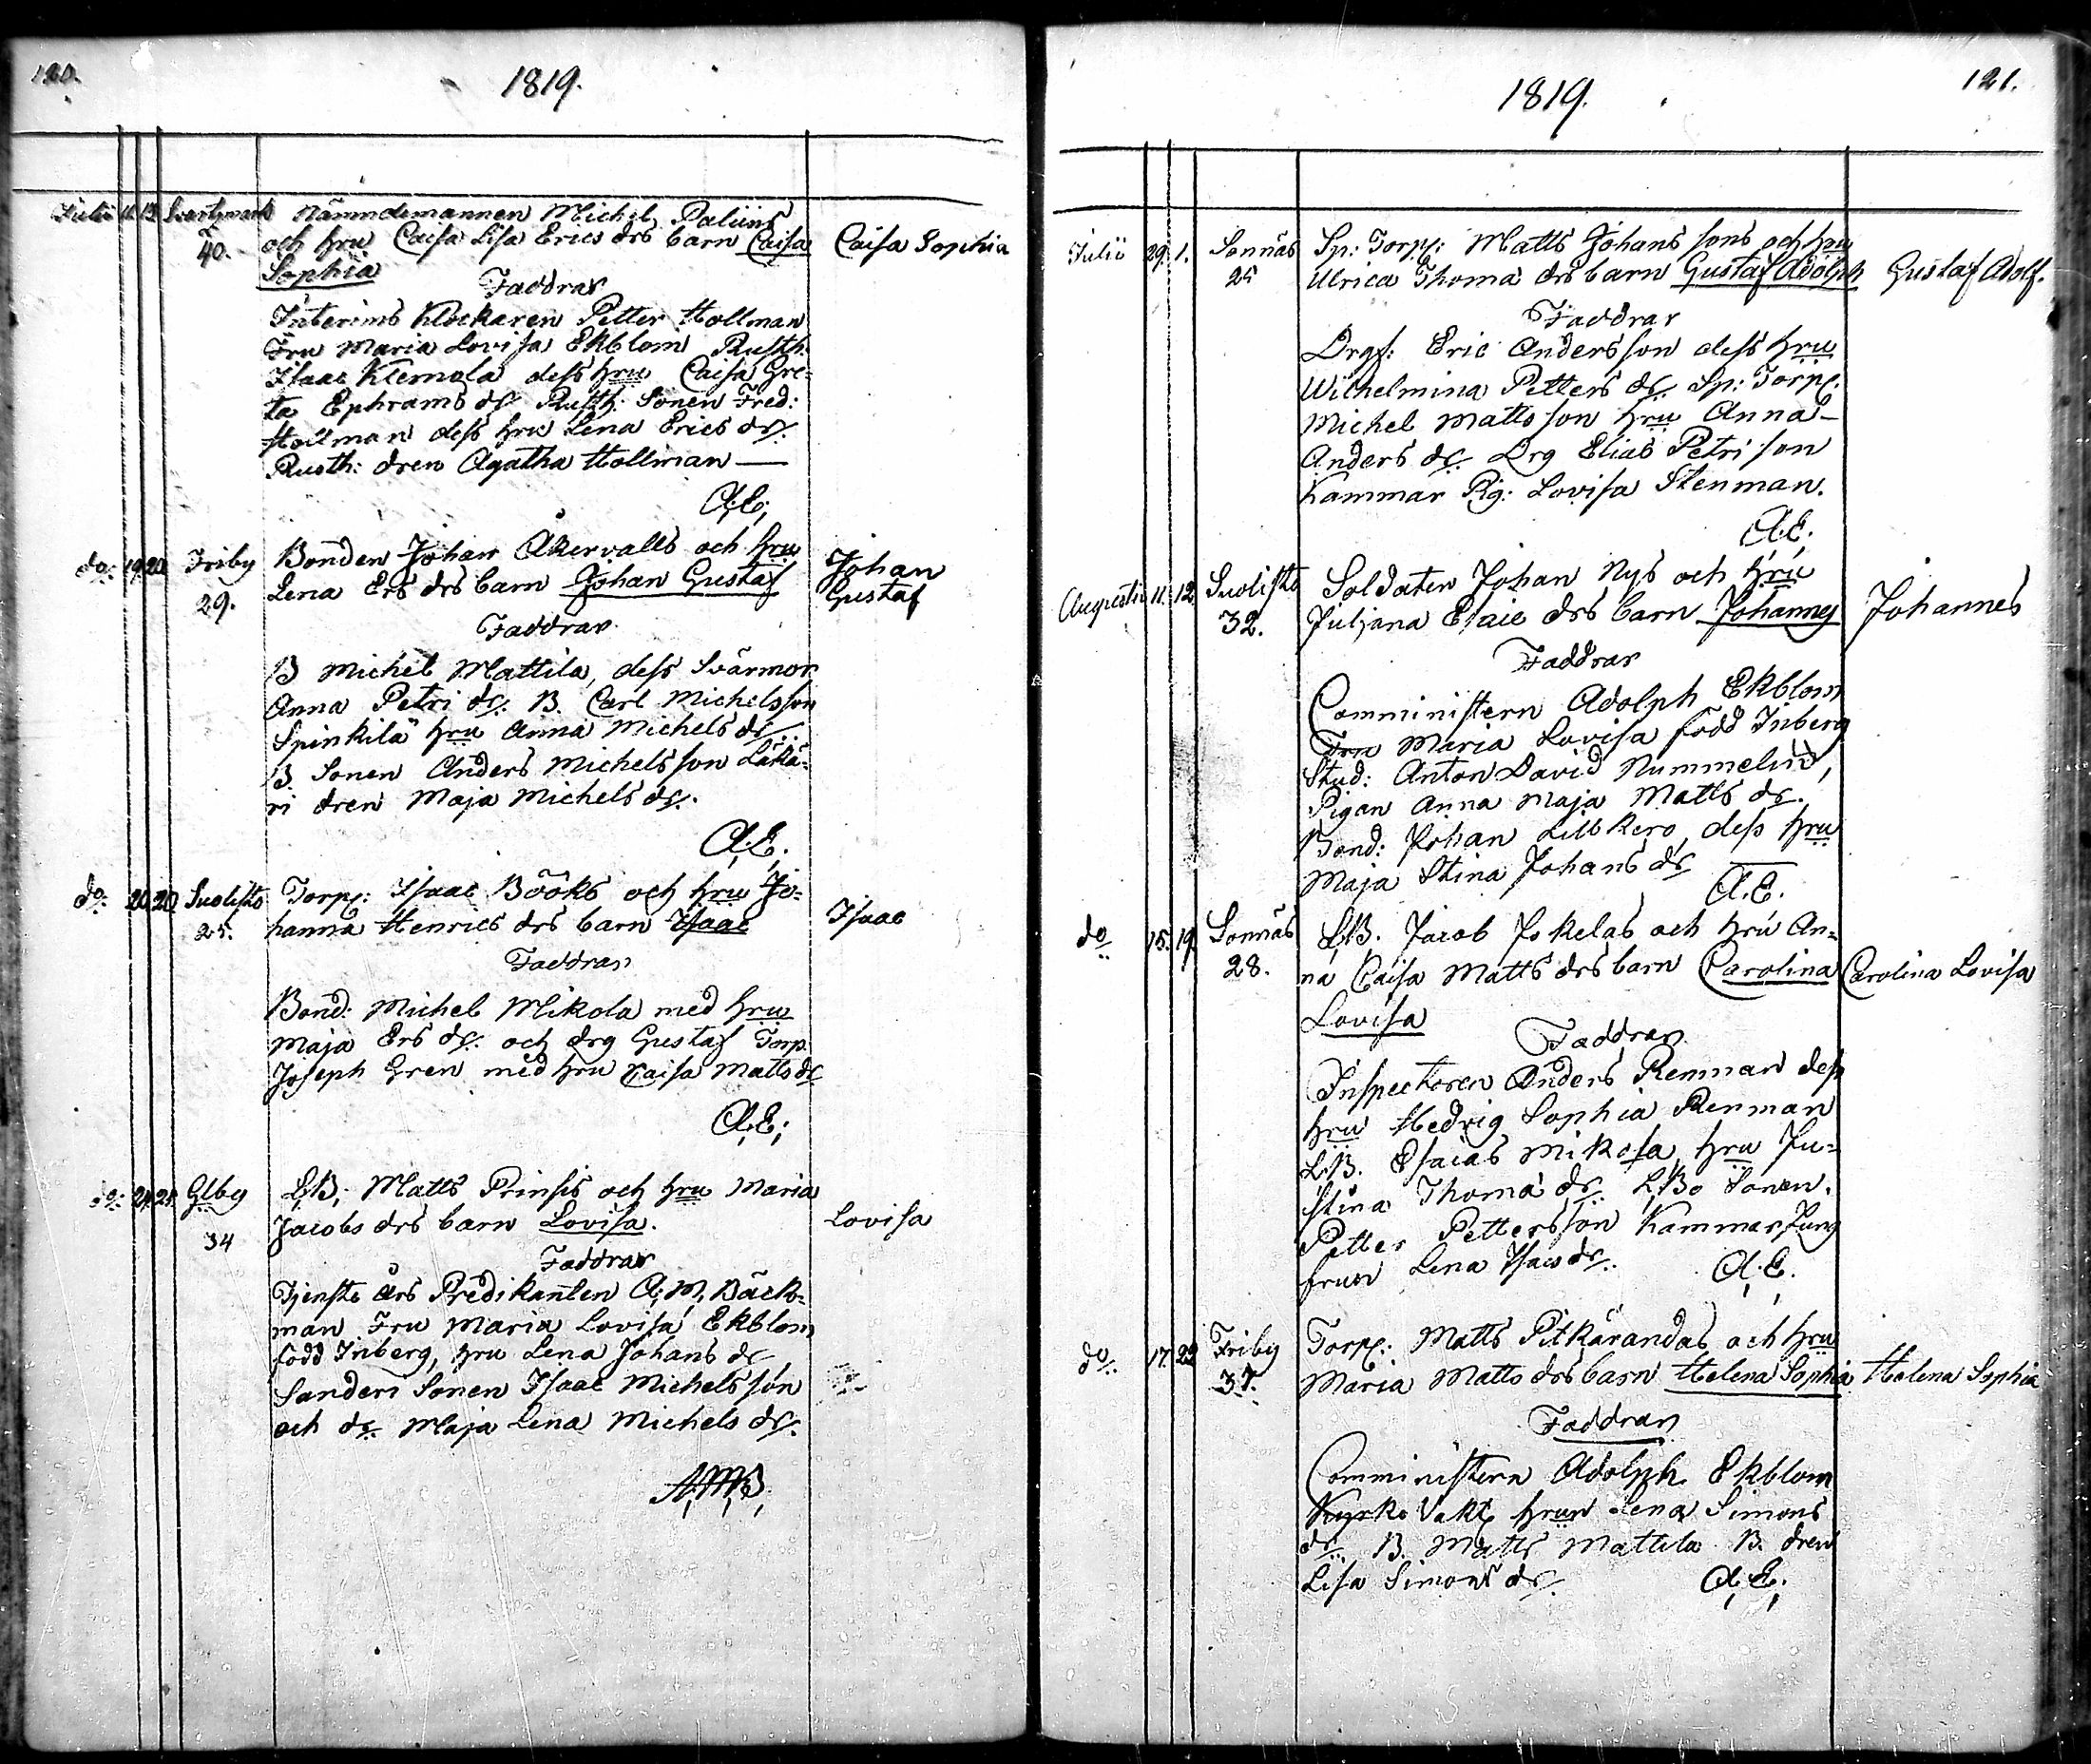 120.
1819.
Julii 11. 13. Svartsmark Nämndemannen Michel Paliins
40. och hru Caisa Lisa Erics drs barn Caisa Caisa Sophia
Sophia
Faddrar
Interims Klockaren Petter Hollman
Fru Maria Lovisa Ekblom Rusth.
Isaac Klemola dess hru Caisa Gre-
ta Ephrams dr. Rusth: Sonen Fred:
Hollman dess hru Lena Erics dr.
Rusth: dren Agatha Hollman —
A.E.
do: 19. 20. Friby Bonden Johan Åkervalls och hru Johan
29. Lena Ers drs barn Johan Gustaf Gustaf
Faddrar
B Michel Mattila, dess Svärmor
Anna Petri dr. B. Carl Michelsson
Spinkilä hru Anna Michels dr.
B. Sonen Anders Michelsson Läkä-
ri dren Maja Michels dr.
A.E.
do: 20. 20. Suolisto Torp: Isaac Bööks och hru Jo-
25. hanna Henrics drs barn Isaac Isaac
Faddrar
Bond: Michel Mikola med hru
Maja Ers dr. och drg Gustaf Torp.
Joseph Gren med hru Caisa Matts dr
A.E.
do: 24. 25. Glby L.B. Matts Prinsis och hru Maria
34 Jacobs drs barn Lovisa. Lovisa
Faddrar
Tjenste års Predikanten A.M. Bäck-
man Fru Maria Lovisa Ekblom
född Inberg, hru Lena Johans dr
Sanderi Sonen Isaac Michelsson
och dr. Maja Lena Michels dr.
A.M.B.
1819.
121.
Julii 29. 1. Sonnäs Sp: Torp: Matts Johans sons och hru
25 Ulrica Thoma drs barn Gustaf Adolph Gustaf Adolf.
Faddrar
Drgs: Eric Andersson dess hru
Wilhelmina Petters dr. Sp: Torp.
Michel Mattsson hru Anna
Anders dr. Drg Elias Petri son
Kammar Pig: Lovisa Stenman.
A.E.
Augusti 11. 12. Suolisto Soldaten Johan Nys och hru
32. Juljana Esaie drs barn Johannes Johannes
Faddrar
Comministern Adolph Ekblom
Fru Maria Lovisa född Inberg
Stud: Anton David Nummelin,
Pigan Anna Maja Matts dr.
Bond: Johan Lillkero, dess hru
Maja Stina Johans dr
A.E.
do 15. 19. Sonnäs L.B. Jacob Jokelas och hru An-
28. na Caisa Matts drs barn Carolina Carolina Lovisa
Lovisa
Faddrar
Inspectoren Anders Renman dess
hru Hedvig Sophia Renman
L.B. Esaias Mikola hru Ju-
stina Thoma dr. L.Bo Sonen.
Petter Pettersson Kammar Jung
frun Lena Isacs dr. A.E.
do. 17. 22 Friby Torp: Matts Pitkärandas och hru
37. Maria Matts drs barn Helena Sophia Helena Sophia
Faddrar
Comministern Adolph Ekblom
Kyrko Vakt. hrun Lena Simons
dr. B. Matts Mattila B. dren
Lisa Simons dr. A.E.